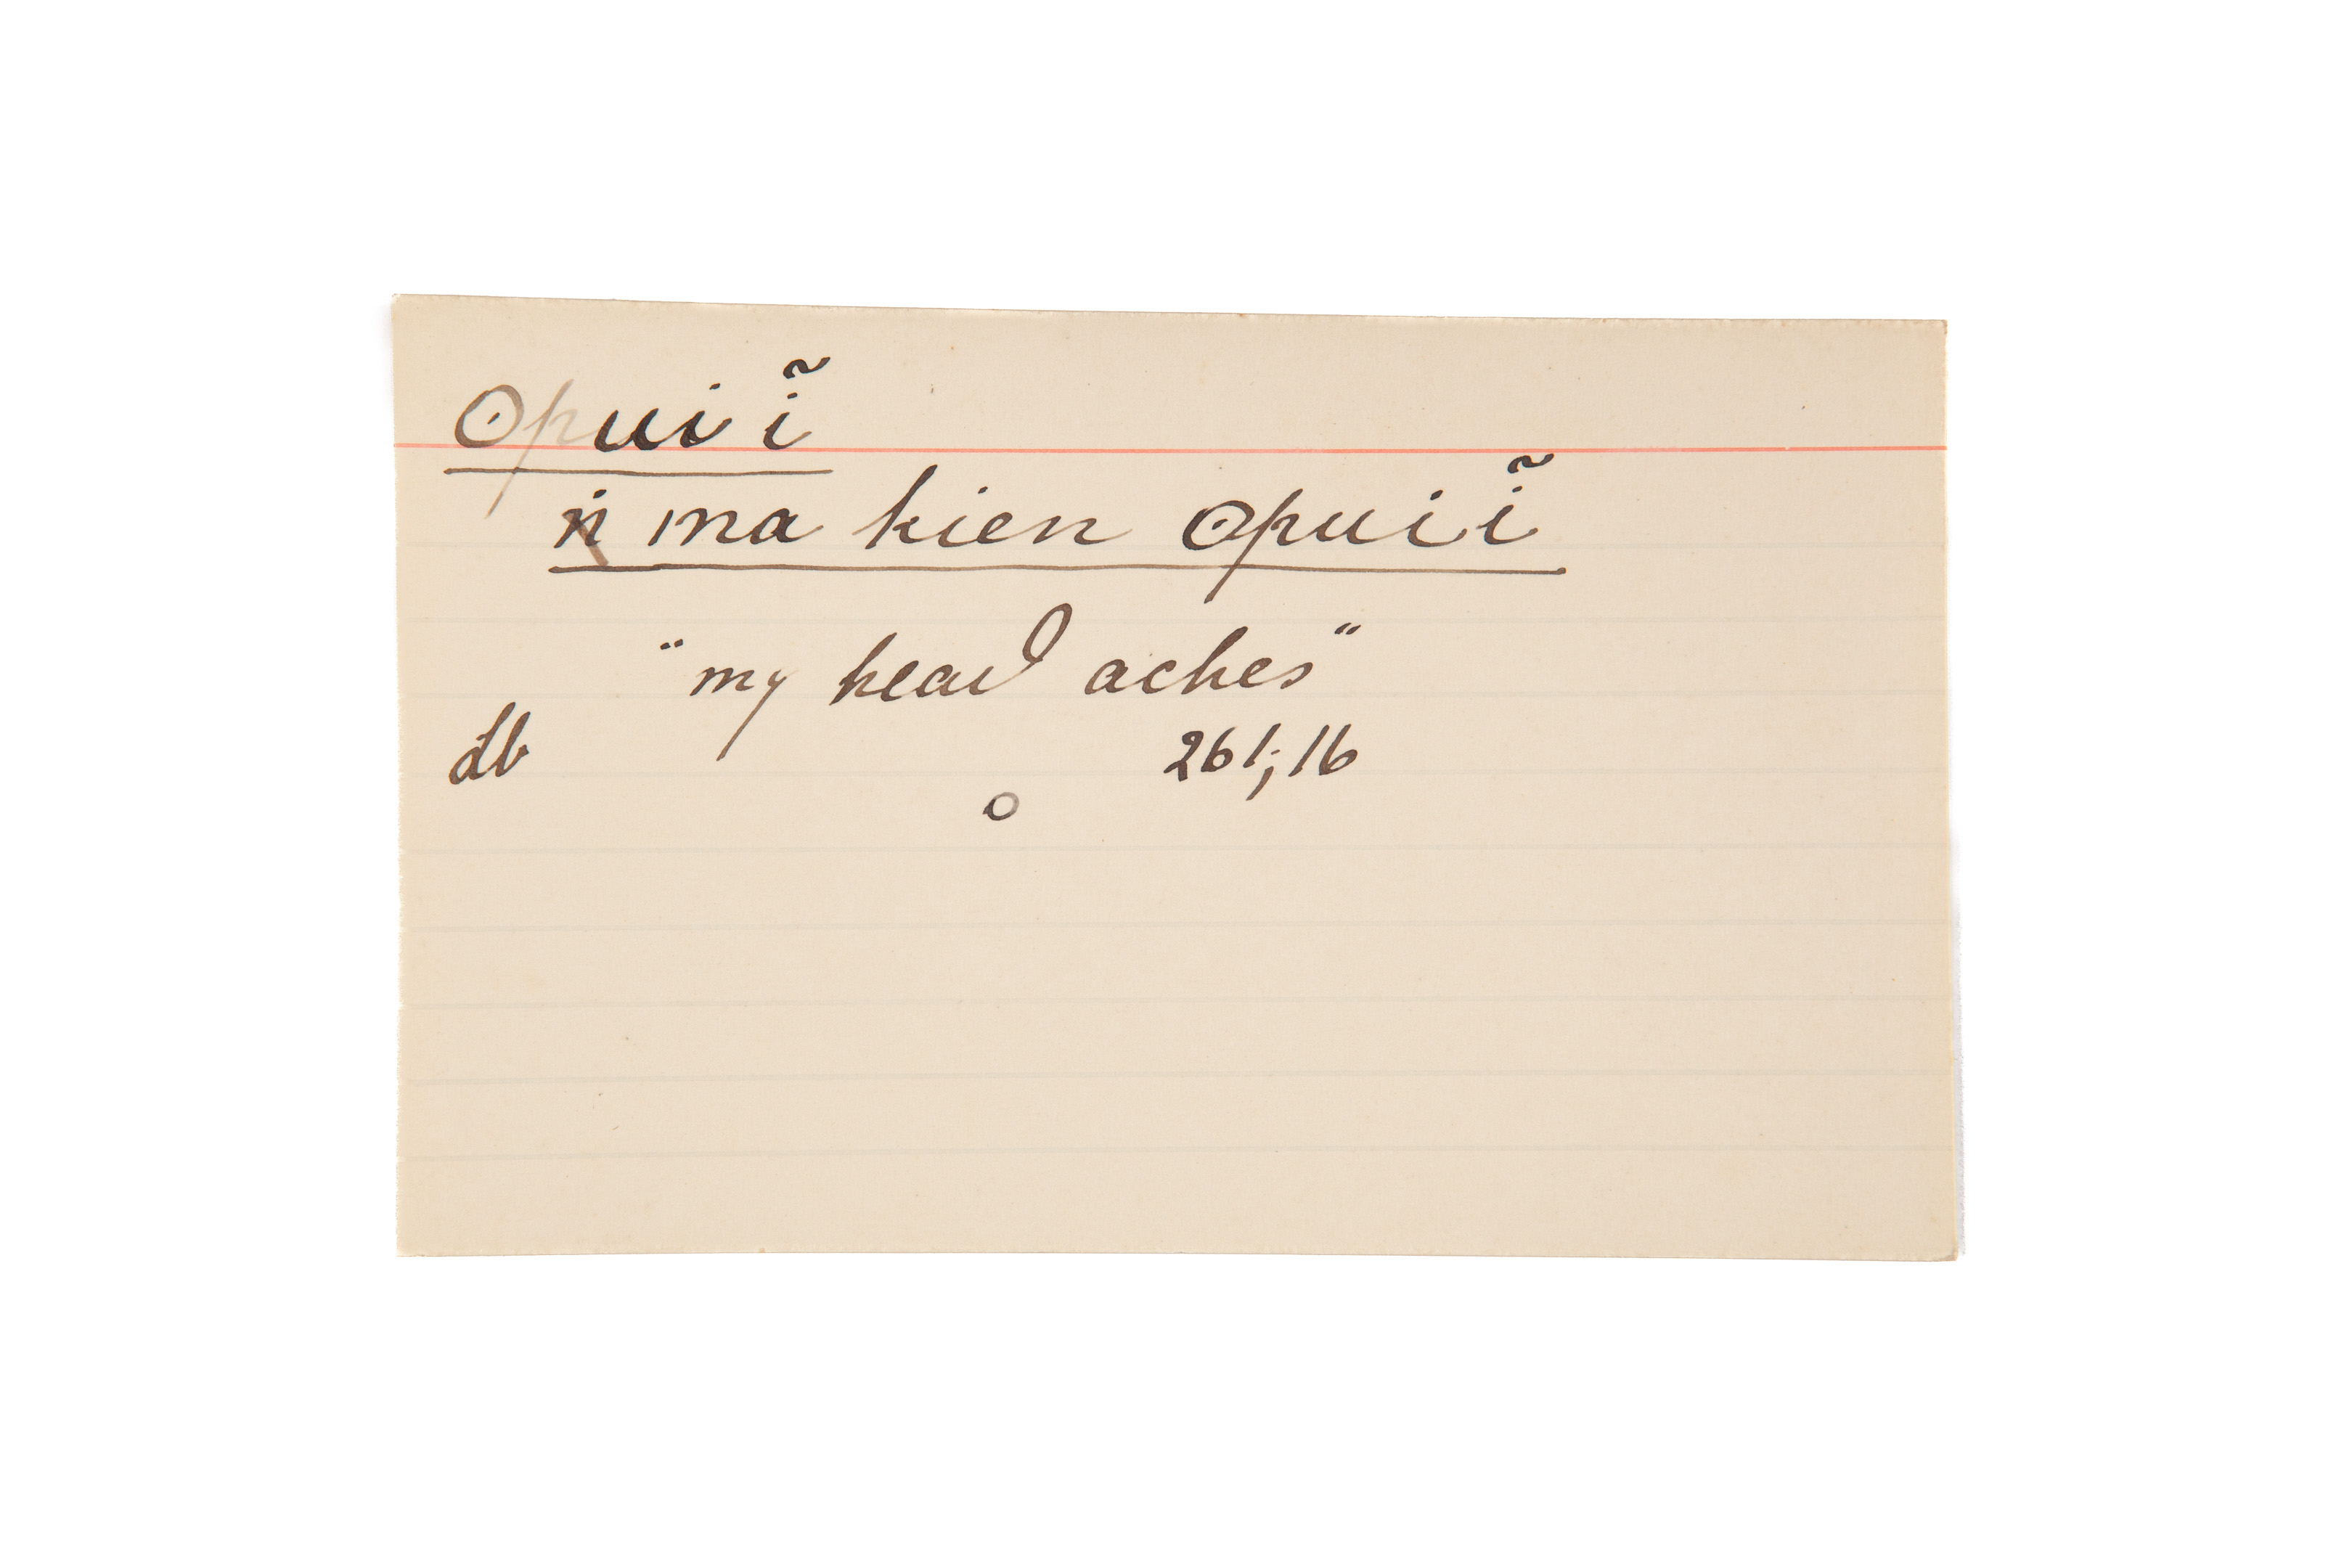 ʘpuiĩ
ṅ ma kien ʘpuiĩ
"my head aches"
Lb 261;16
o